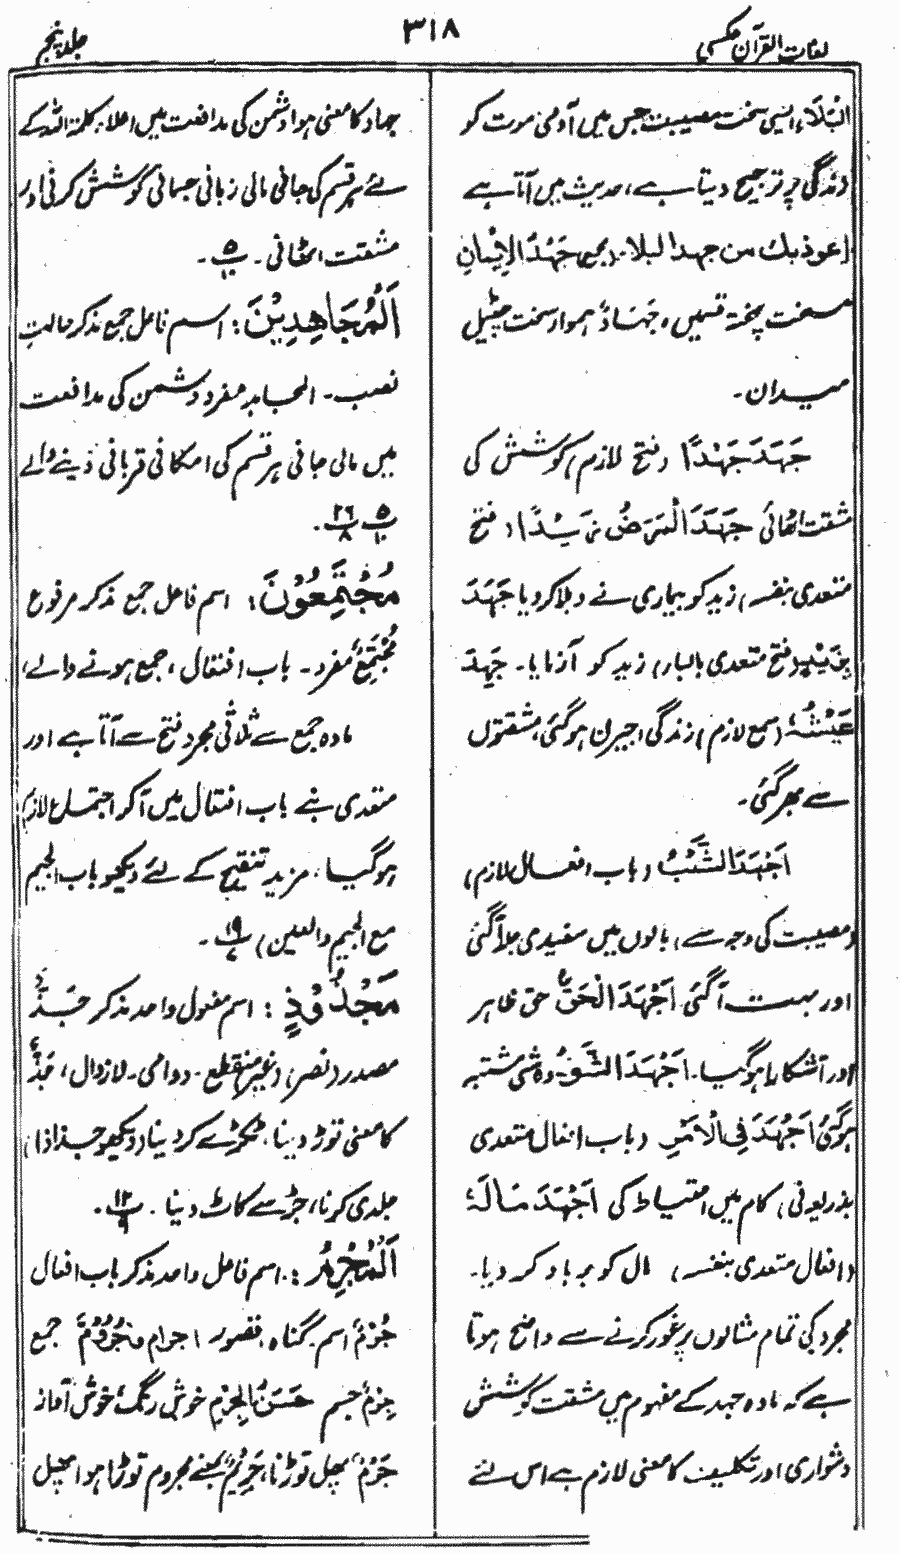 لغات القرآن عکسی
۳۱۸
جلد پنجم
البَلَاءِ ایسی سخت مصیبت جس میں آدمی موت کو
زندگی پر ترجیح دیتا ہے، حدیث میں آتا ہے
اعوذ بك من جہد البلاء۔ (جمع) جَہْدُ الاِنْسَانِ
سخت پختہ قسمیں، جَہَادٌ ہموار سخت چٹیل
میدان۔
جَہَدَ جَہْدًا (فتح لازم) کوشش کی
مشقت اٹھائی جَہَدَ الْمَرَضُ زَیْدًا (فتح
متعدی بنفسہ) زید کو بیماری نے دبلا کر دیا جَہَدَ
بِزَیْدٍ (فتح متعدی بالباء) زید کو آزمایا۔ جَہِدَ
عَیْشُہٗ (سمع لازم) زندگی اجیرن ہوگئی، مشقتوں
سے بھر گئی۔
اَجْہَدَ الشَّیْبُ (باب افعال لازم)
(مصیبت کی وجہ سے) بالوں میں سفیدی جلد آگئی
اور بہت آگئی۔ اَجْہَدَ الْحَقُّ حق ظاہر
اور آشکارا ہوگیا۔ اَجْہَدَ الشَّیْءُ وہ شی مشتبہ
ہوگئی اَجْہَدَ فِی الْاَمْرِ (باب افعال متعدی
بذریعہ فی) کام میں احتیاط کی اَجْہَدَ مَالَہٗ
(افعال متعدی بنفسہ) مال کو برباد کر دیا۔
مجرد کی تمام مثالوں پر غور کرنے سے واضح ہوتا
ہے کہ مادہ جہد کے مفہوم میں مشقت کوشش
دشواری اور تکلیف کا معنی لازم ہے اس لئے
جہاد کا معنی ہوا دشمن کی مدافعت میں اعلاء کلمۃ اللہ کے
لئے ہر قسم کی جانی مالی زبانی جسمانی کوشش کرنی اور
مشقت اٹھانی۔ ۵/۱۰۔
اَلْمُجَاهِدِيْنَ: اسم فاعل جمع مذکر حالت
نصب۔ المجاہد مفرد دشمن کی مدافعت
میں مالی جانی ہر قسم کی امکانی قربانی دینے والے
۵/۱۰ ۲۶/۸۔
مُجْتَمِعُوْنَ: اسم فاعل جمع مذکر مرفوع
مُجْتَمِعٌ مفرد۔ باب افتعال، جمع ہونے والے،
مادہ جمع سے ثلاثی مجرد فتح سے آتا ہے اور
متعدی ہے باب افتعال میں آکر اجتماع لازم
ہوگیا۔ مزید تنقیح کے لئے دیکھو باب الجیم
مع الجیم والعین) ۱۹/۷۔
مَجْذُوْذٍ: اسم مفعول واحد مذکر جَذٌّ
مصدر (نصر) (غیر) منقطع۔ دوامی۔ لازوال، جَذٌّ
کا معنی توڑ دینا، ٹکڑے کر دینا (دیکھو جذاذا)
جلدی کرنا، جڑ سے کاٹ دینا۔ ۱۲/۹۔
اَلْمُجْرِمُ: اسم فاعل واحد مذکر باب افعال
جُرْمٌ اسم گناہ، قصور اجرام و جُرُوْمٌ جمع
جِرْمٌ جسم حَسَنُ الْجِرْمِ خوش رنگ، خوش آواز
جَرْمٌ پھل توڑنا، جَرِیْمٌ بمعنے مجروم توڑا ہوا پھل